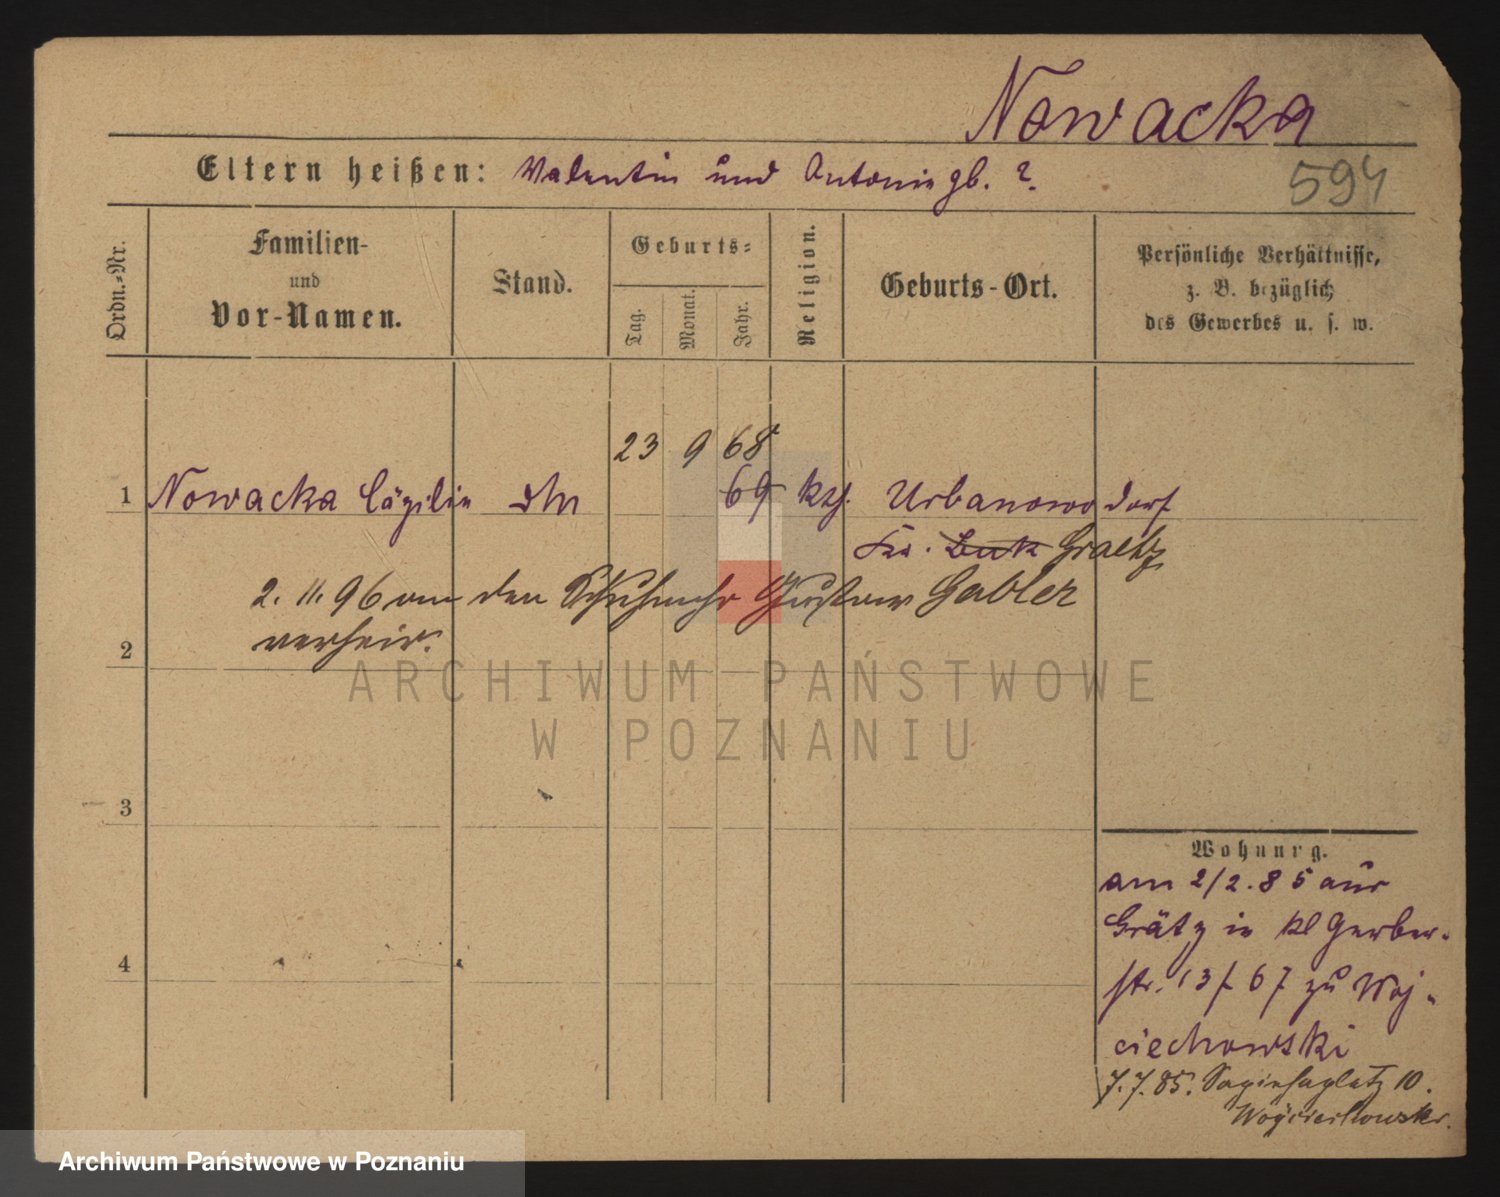 Nowacka
594
Eltern heißen: Valentin und Antonie gb. ?
Ordn.-Nr.
Familien- und Vor-Namen.
Stand.
Geburts-
Tag.
Monat.
Jahr.
Religion.
Geburts-Ort.
Persönliche Verhältnisse,
z. B. bezüglich
des Gewerbes u. s. w.
23 9 68
1 Nowacka Cäzilie 69 kth. Urbanowo Dorf
Kr. Buk Graetz
2. 11. 96 an den Schuhmchr Gustav Gabler
verheir.
2
3
4
ARCHIWUM PAŃSTWOWE
W POZNANIU
Wohnung.
am 2/2.85 aus
Grätz in Kl Gerber-
str. 13/ 67 zu Woj-
ciechowski
7.7.85. Sapiehaplatz 10.
Wojciechowski.
Archiwum Państwowe w Poznaniu